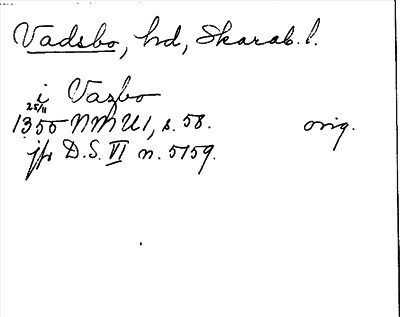 Vadsbo, hd, Skarab. l.
i Vazbo
25/11
1350 NMU 1, s. 58. orig.
jfr D.S. VI n. 5159.